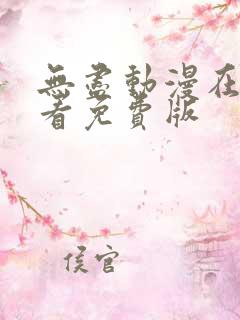 無盡動漫在
看免費版
侯官